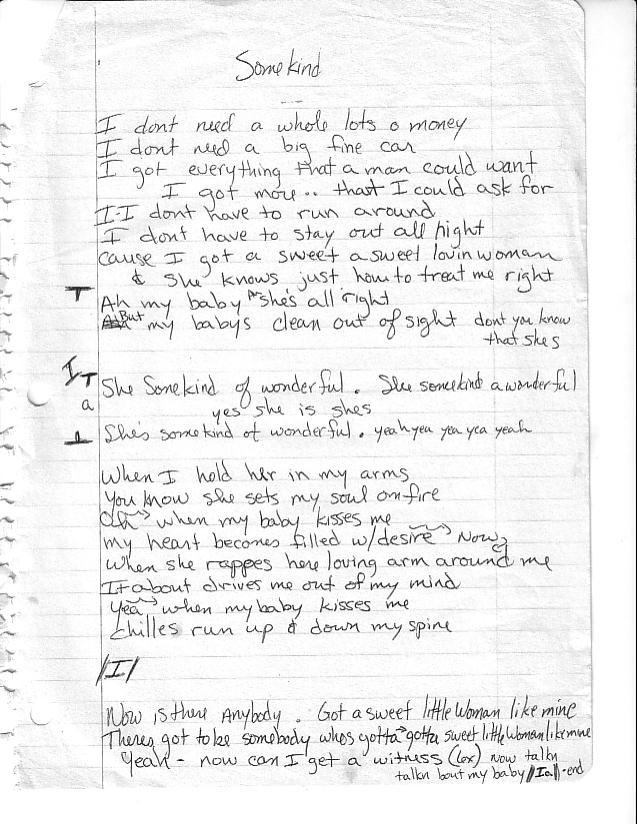 Somekind
I dont need a whole lots o money
I dont need a big fine car
I got everything that a man could want
I got more.. that I could ask for
I-I dont have to run around
I dont have to stay out all night
cause I got a sweet a sweet lovin woman
& she knows just how to treat me right
T
Ah my baby she's all right
But my babys clean out of sight dont you know
that shes
I T
a
She Somekind of wonderful. She somekind a wonderful
yes she is shes
She's somekind of wonderful. yeah yea yea yea yeah
When I hold her in my arms
You know she sets my soul on fire
Oh when my baby kisses me
my heart becomes filled w/desire Now
When she rappes here loving arm around me
It about drives me out of my mind
Yea when my baby kisses me
chilles run up & down my spine
/I/
Now is there Anybody. Got a sweet little woman like mine
Theres got to be somebody whos gotta gotta sweet little woman like mine
Yeah - now can I get a witness (6x) now talkn
talkn bout my baby //Ia// -end